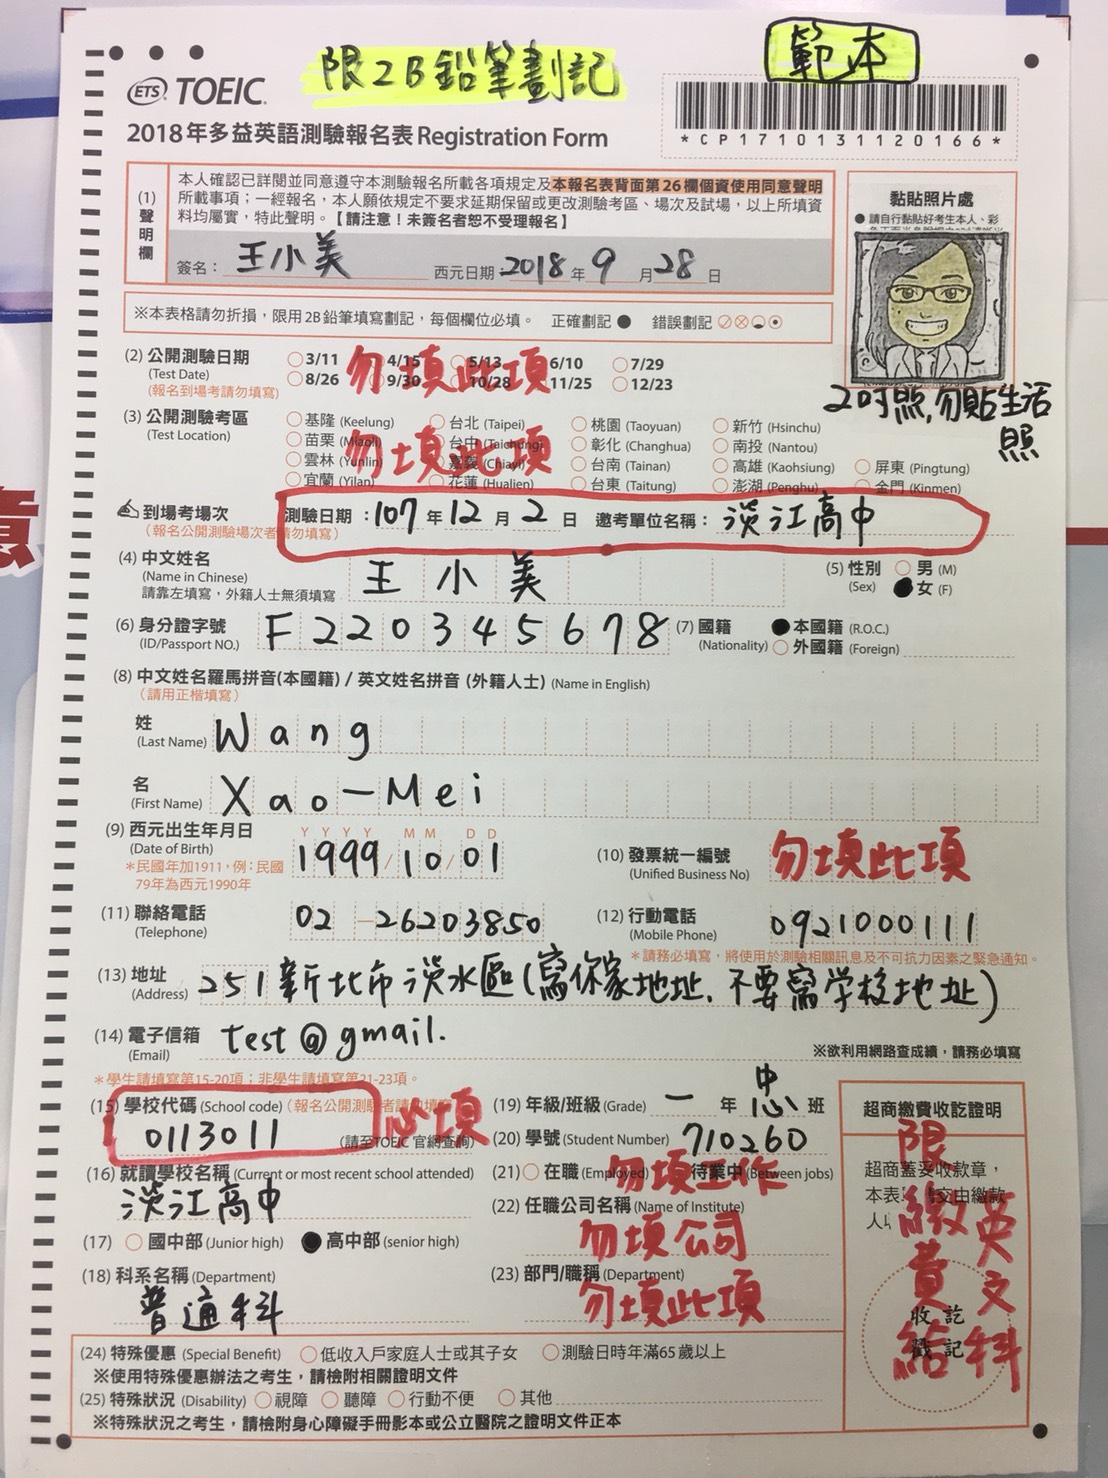 限2B鉛筆劃記
範本
ETS TOEIC.
2018年多益英語測驗報名表 Registration Form
*CP171013112016 6*
(1)聲明欄
本人確認已詳閱並同意遵守本測驗報名所載各項規定及本報名表背面第26欄個資使用同意聲明
所載事項；一經報名，本人願依規定不要求延期保留或更改測驗考區、場次及試場，以上所填資
料均屬實，特此聲明。【請注意！未簽名者恕不受理報名】
簽名：王小美 西元日期：2018年9月28日
黏貼照片處
●請自行黏貼好考生本人、彩
2吋照,勿貼生活照
※本表格請勿折損，限用2B鉛筆填寫劃記，每個欄位必填。 正確劃記 錯誤劃記
(2) 公開測驗日期 3/11 4/15 5/13 6/10 7/29
(Test Date) 8/26 9/30 10/28 11/25 12/23
(報名到場考請勿填寫)
勿填此項
(3) 公開測驗考區 基隆 (Keelung) 台北 (Taipei) 桃園 (Taoyuan) 新竹 (Hsinchu)
(Test Location) 苗栗 (Miaoli) 台中 (Taichung) 彰化 (Changhua) 南投 (Nantou)
雲林 (Yunlin) 嘉義 (Chiayi) 台南 (Tainan) 高雄 (Kaohsiung) 屏東 (Pingtung)
宜蘭 (Yilan) 花蓮 (Hualien) 台東 (Taitung) 澎湖 (Penghu) 金門 (Kinmen)
勿填此項
到場考場次 測驗日期：107年12月2日 邀考單位名稱：淡江高中
(報名公開測驗場次者請勿填寫)
(4) 中文姓名 王小美
(Name in Chinese)
請靠左填寫，外籍人士無須填寫
(5) 性別 男 (M)
(Sex) 女 (F)
(6) 身分證字號 F220345678
(ID/Passport NO.)
(7) 國籍 本國籍 (R.O.C.)
(Nationality) 外國籍 (Foreign)
(8) 中文姓名羅馬拼音(本國籍) / 英文姓名拼音 (外籍人士) (Name in English)
(請用正楷填寫)
姓
(Last Name) Wang
名
(First Name) Xao-Mei
(9) 西元出生年月日 YYYY MM DD
(Date of Birth) 1999/10/01
＊民國年加1911，例：民國
79年為西元1990年
(10) 發票統一編號 勿填此項
(Unified Business No)
(11) 聯絡電話 02-26203850
(Telephone)
(12) 行動電話 0921000111
(Mobile Phone)
＊請務必填寫，將使用於測驗相關訊息及不可抗力因素之緊急通知。
(13) 地址 251新北市淡水區(寫你家地址,不要寫学校地址)
(Address)
(14) 電子信箱 test@gmail.
(Email)
※欲利用網路查成績，請務必填寫
＊學生請填寫第15-20項；非學生請填寫第21-23項。
(15) 學校代碼 (School code) (報名公開測驗者請勿填寫
0113011 (請至TOEIC 官網查詢)
必填
(16) 就讀學校名稱 (Current or most recent school attended)
淡江高中
(17) 國中部 (Junior high) 高中部 (senior high)
(18) 科系名稱 (Department)
普通科
(19) 年級/班級 (Grade) 一年忠班
忠
(20) 學號 (Student Number) 710260
(21) 在職 (Employed) 待業中 (Between jobs)
勿填工作
(22) 任職公司名稱 (Name of Institute)
勿填公司
(23) 部門/職稱 (Department)
勿填此項
超商繳費收訖證明
超商蓋妥收款章，
本表 交由繳款
人
收訖
戳記
限繳費給
英文科
(24) 特殊優惠 (Special Benefit) 低收入戶家庭人士或其子女 測驗日時年滿65歲以上
※使用特殊優惠辦法之考生，請檢附相關證明文件
(25) 特殊狀況 (Disability) 視障 聽障 行動不便 其他
※特殊狀況之考生，請檢附身心障礙手冊影本或公立醫院之證明文件正本